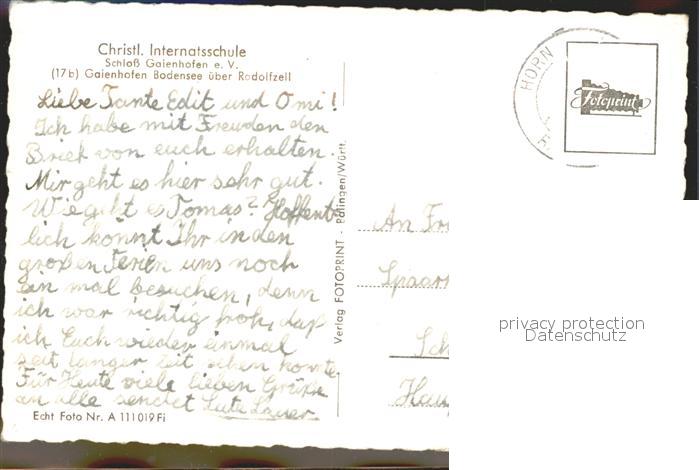 Christl. Internatsschule
Schloß Gaienhofen e. V.
(17b) Gaienhofen Bodensee über Radolfzell
Liebe Tante Edit und Omi!
Ich habe mit Freuden den
Brief von euch erhalten.
Mir geht es hier sehr gut.
Wie geht es Tomas? Hoffent-
lich könnt Ihr in den
großen Ferien uns noch
ein mal besuchen, denn
ich war richtig froh, daß
ich Euch wieder einmal
seit langer Zeit sehen konnte
Für Heute viele lieben Grüße
an alle sendet
Echt Foto Nr. A 111019 Fi
Verlag FOTOPRINT - Balingen/Württ.
HORN
Fotoprint
An
privacy protection
Datenschutz